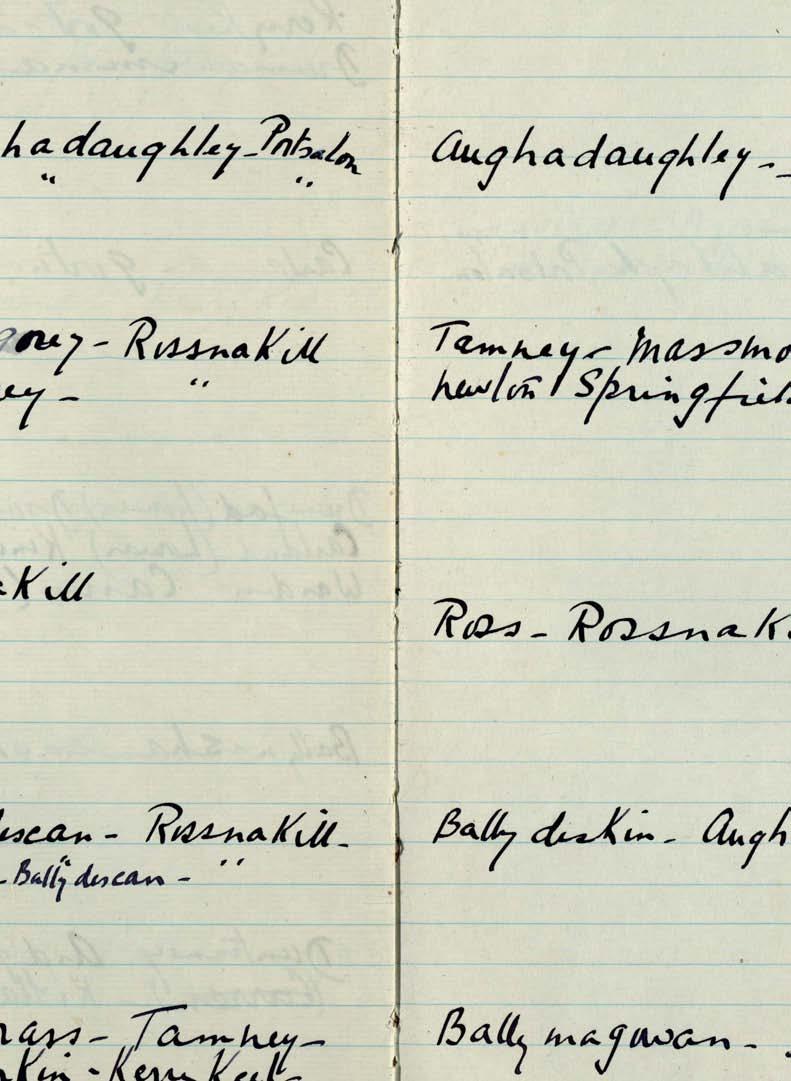 hadaughley - Portsalon
" "
gorey - RossnaKill
ey - "
aKill
descan - RossnaKill -
- Ballydescan - "
rass - Tamney -
Kin - Kerry Keel -
Aughadaughley - -
Tamney - Massmo
newton Springfiel
Ross - RossnaK
Bally desKin - Augh
Bally magowan -